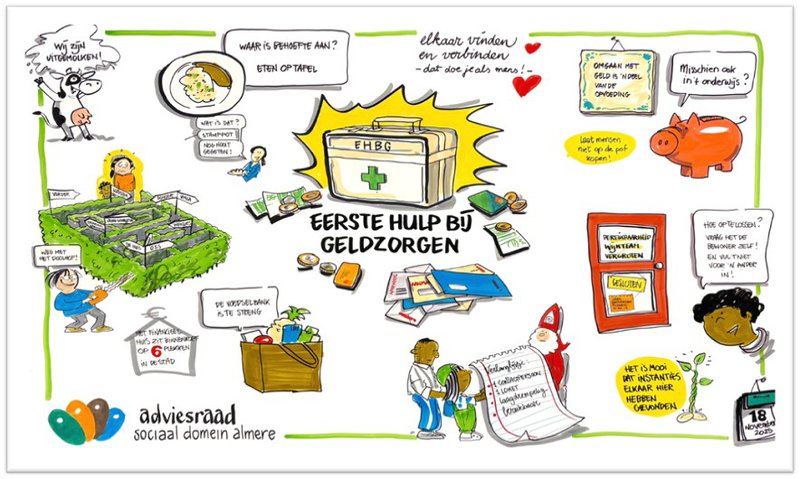 Wij zijn
uitgemolken!
WAAR IS BEHOEFTE AAN?
ETEN OP TAFEL
WAT IS DAT?
STAMPPOT!
NOG NOOIT
GEGETEN!
elkaar vinden
en verbinden
- dat doe je als mens! -
OMGAAN MET
GELD IS 'N DEEL
VAN DE
OPVOEDING
Misschien ook
in 't onderwijs?
Laat mensen
niet op de pof
kopen!
EHBG
EERSTE HULP BIJ
GELDZORGEN
WEG MET
HET DOOLHOF!
HET FINANCIEELE
HUIS ZIT BINNENKORT
OP 6 PLEKKEN
IN DE STAD
DE VOEDSELBANK
IS TE STRENG
BEREIKBAARHEID
WIJKTEAM
VERGROTEN
GESLOTEN
HOE OPTELOSSEN?
VRAAG HET DE
BEWONER ZELF!
EN VUL 'T NIET
VOOR 'N ANDER
IN!
Verlanglijstje:
1 CONTACTPERSOON
1 LOKET
Laagdrempelig
Bereikbaar
HET IS MOOI
DAT INSTANTIES
ELKAAR HIER
HEBBEN
GEVONDEN.
18
November
2025
adviesraad
sociaal domein almere